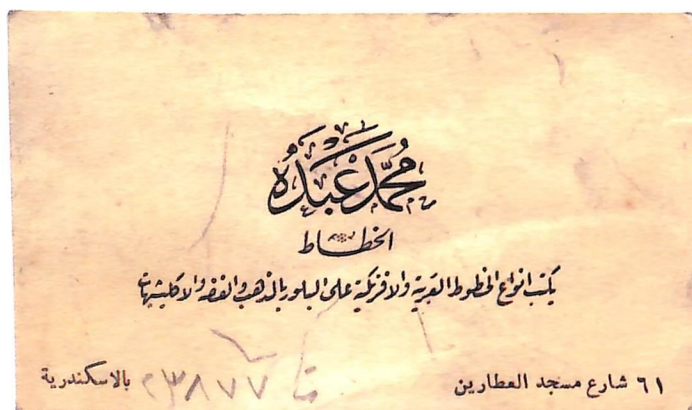 محمد عبده
الخطاط
يكتب انواع الخطوط العربية والافرنكية على البلور بالذهب والفضه والاكليشيهات
٦١ شارع مسجد العطارين ت ٢٣٨٧٧ بالاسكندرية